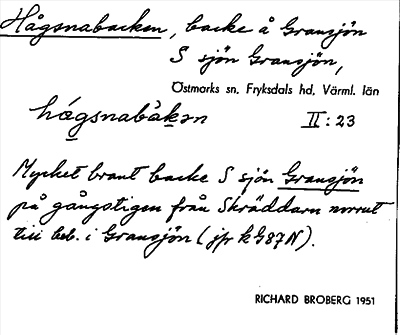 Hågsnabacken, backe å Gransjön
S sjön Gransjön,
Östmarks sn. Fryksdals hd. Värml. län
hágsnabàkən II:23
Mycket brant backe S sjön Gransjön
på gångstigen från Skräddarn norrut
till beb. i Gransjön (jfr kG87N).
RICHARD BROBERG 1951